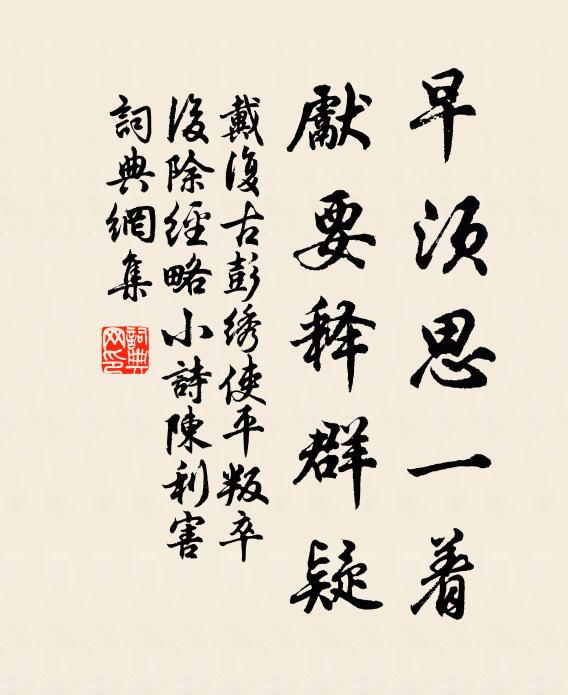 早須思一着
獻要释群疑
戴復古彭綉使平叛卒
後除經略小詩陳利害
詞典網集
詞典网印